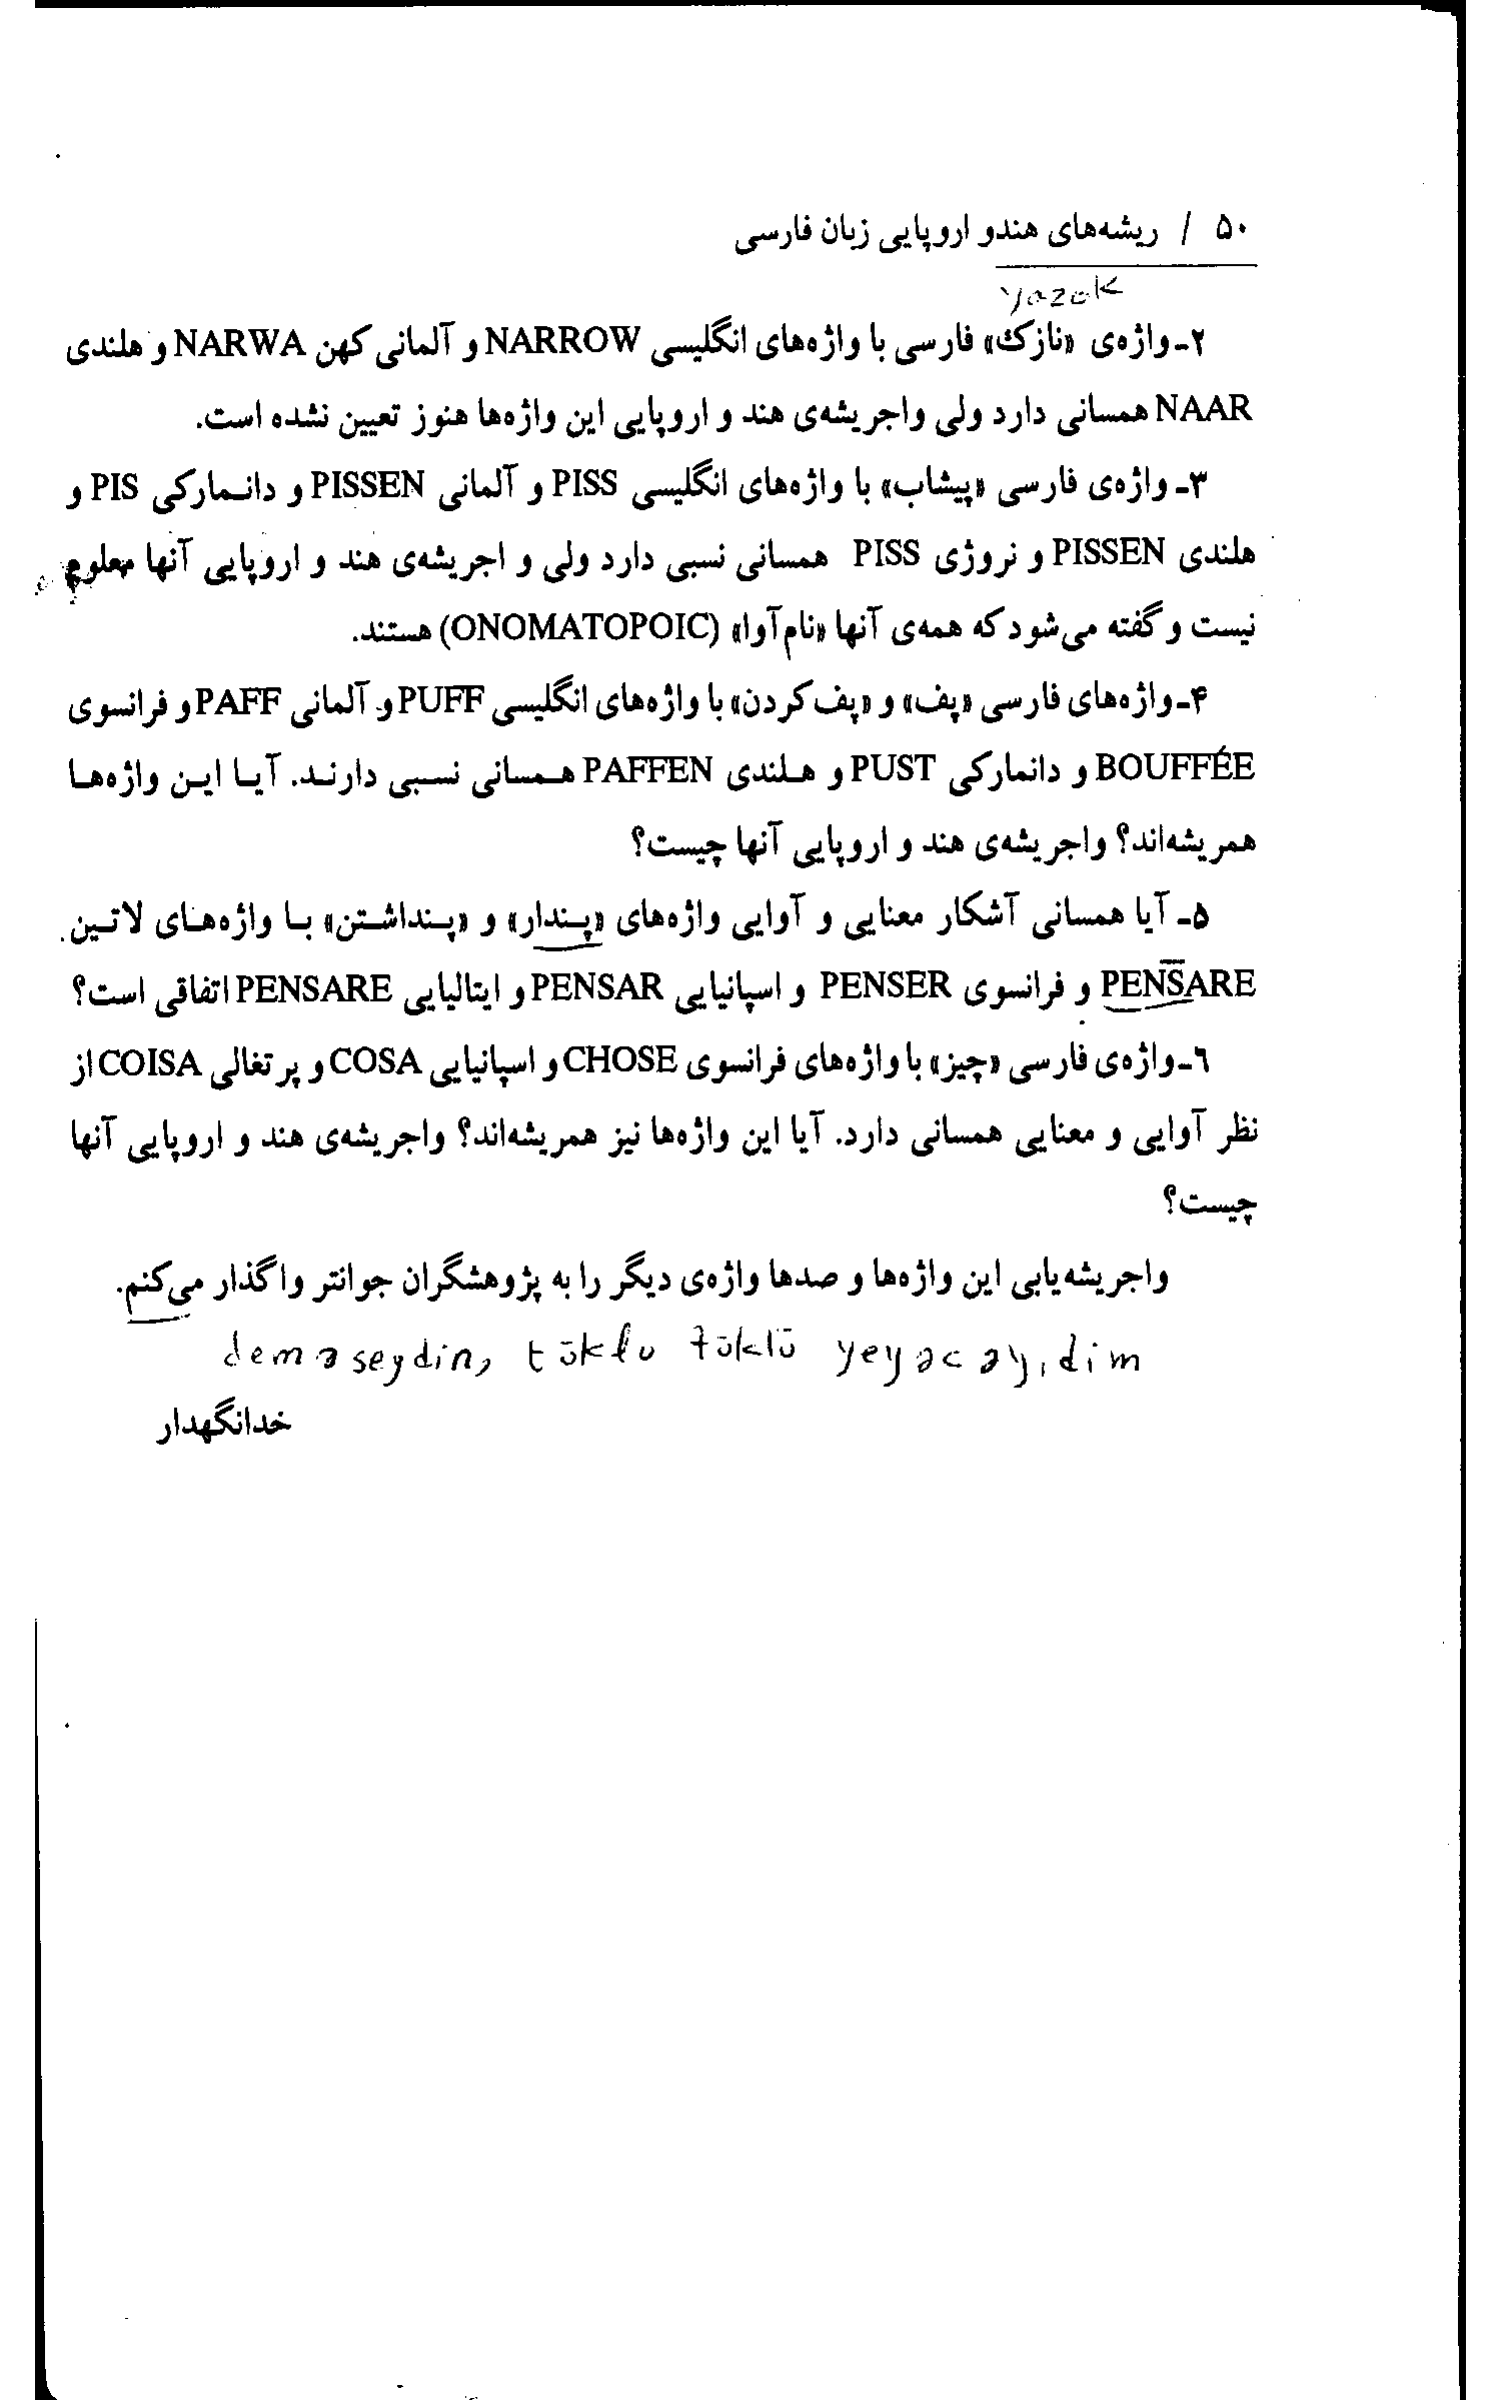 ۵۰ / ریشه‌های هندو اروپایی زبان فارسی
yazok
۲ـ واژه‌ی «نازک» فارسی با واژه‌های انگلیسی NARROW و آلمانی کهن NARWA و هلندی
NAAR همسانی دارد ولی واجریشه‌ی هند و اروپایی این واژه‌ها هنوز تعیین نشده است.
۳ـ واژه‌ی فارسی «پیشاب» با واژه‌های انگلیسی PISS و آلمانی PISSEN و دانمارکی PIS و
هلندی PISSEN و نروژی PISS همسانی نسبی دارد ولی و اجریشه‌ی هند و اروپایی آنها معلوم
نیست و گفته می‌شود که همه‌ی آنها «نام‌آوا» (ONOMATOPOIC) هستند.
۴ـ واژه‌های فارسی «پف» و «پف کردن» با واژه‌های انگلیسی PUFF و آلمانی PAFF و فرانسوی
BOUFFÉE و دانمارکی PUST و هلندی PAFFEN همسانی نسبی دارند. آیا این واژه‌ها
همریشه‌اند؟ واجریشه‌ی هند و اروپایی آنها چیست؟
۵ـ آیا همسانی آشکار معنایی و آوایی واژه‌های «پندار» و «پنداشتن» با واژه‌های لاتین
PENSARE و فرانسوی PENSER و اسپانیایی PENSAR و ایتالیایی PENSARE اتفاقی است؟
۶ـ واژه‌ی فارسی «چیز» با واژه‌های فرانسوی CHOSE و اسپانیایی COSA و پرتغالی COISA از
نظر آوایی و معنایی همسانی دارد. آیا این واژه‌ها نیز همریشه‌اند؟ واجریشه‌ی هند و اروپایی آنها
چیست؟
واجریشه‌یابی این واژه‌ها و صدها واژه‌ی دیگر را به پژوهشگران جوانتر واگذار می‌کنم.
deməseydin, töklu tüklü yeyəcəyidim
خدانگهدار